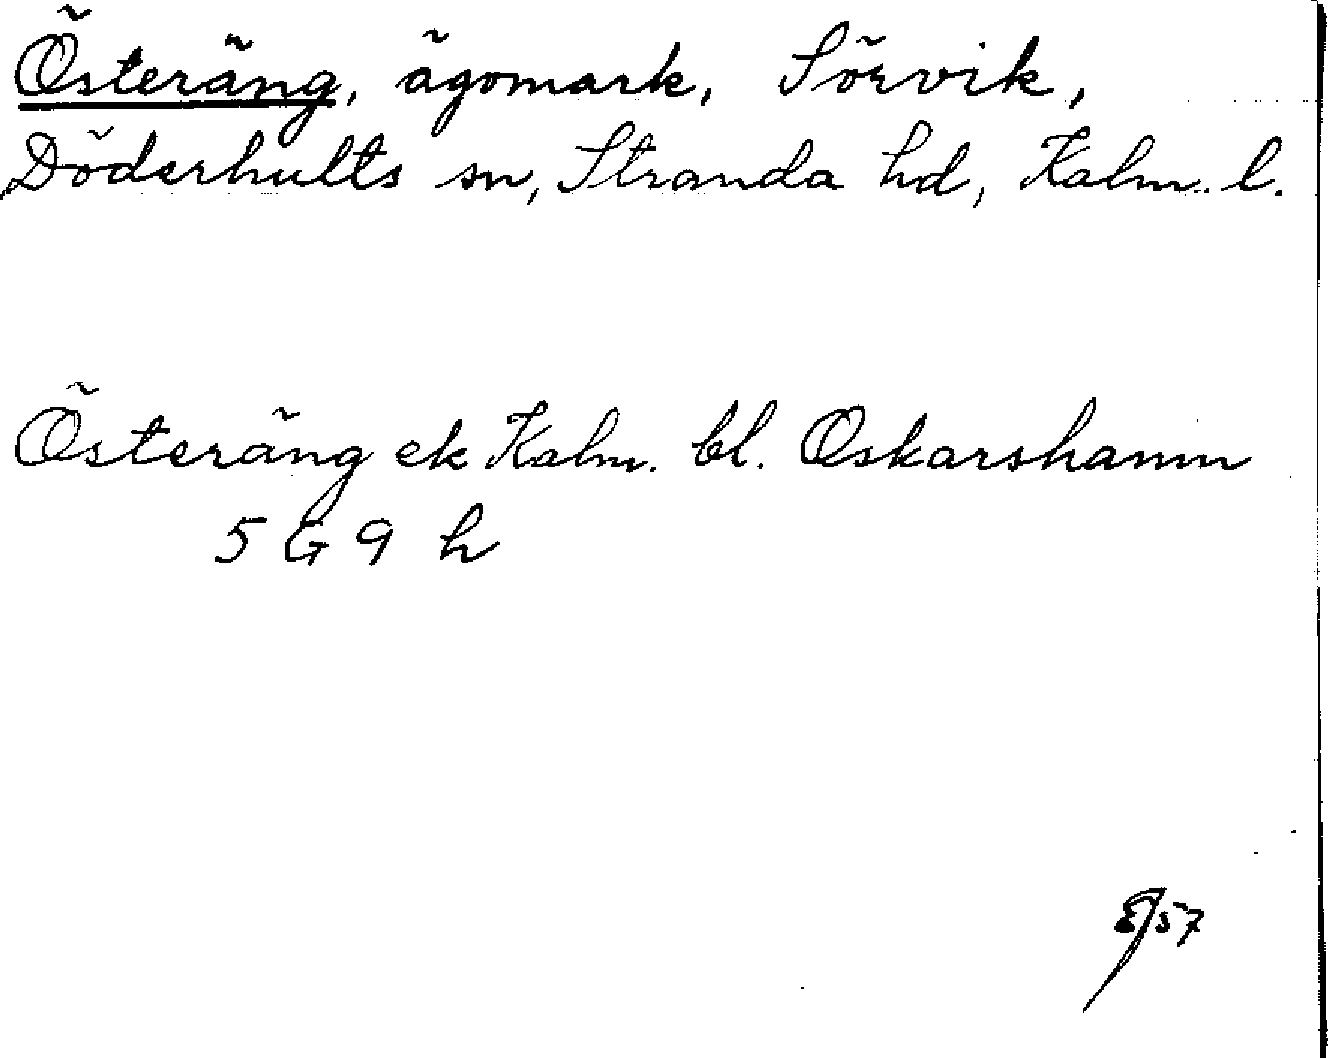 Österäng, ägomark, Sörvik,
Döderhults sn, Stranda hd, Kalm. l.
Österäng ek Kalm. bl. Oskarshamn
5 G 9 h
57